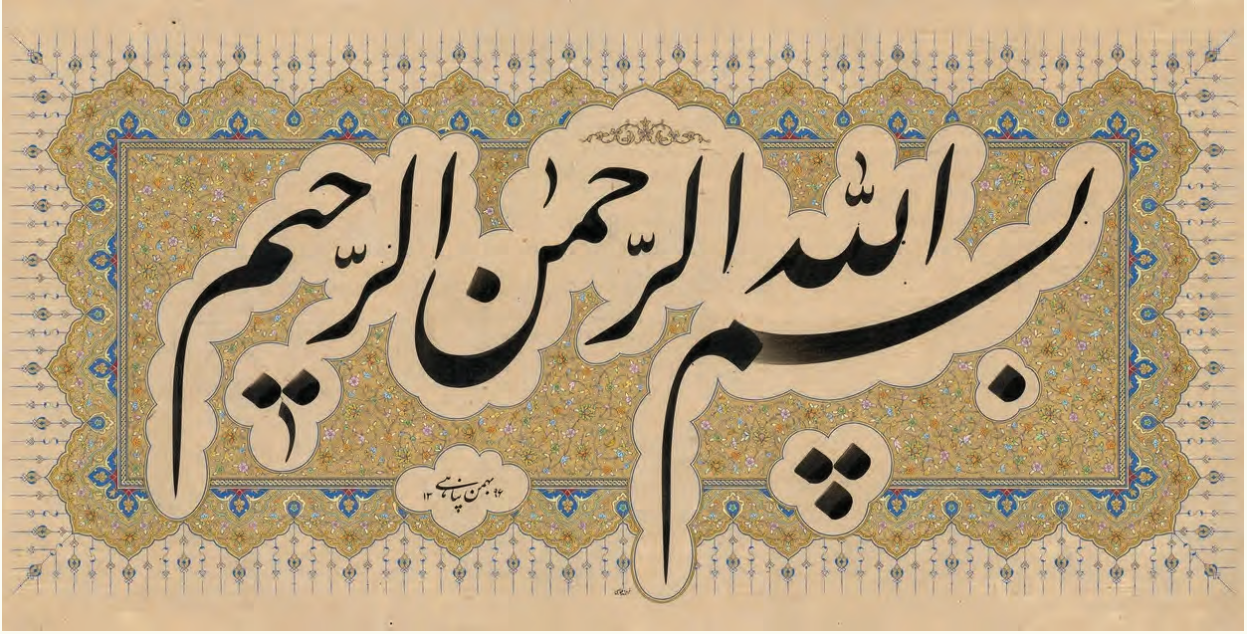 بسم الله الرحمن الرحیم
بهمن پناهی ۱۳۹۶